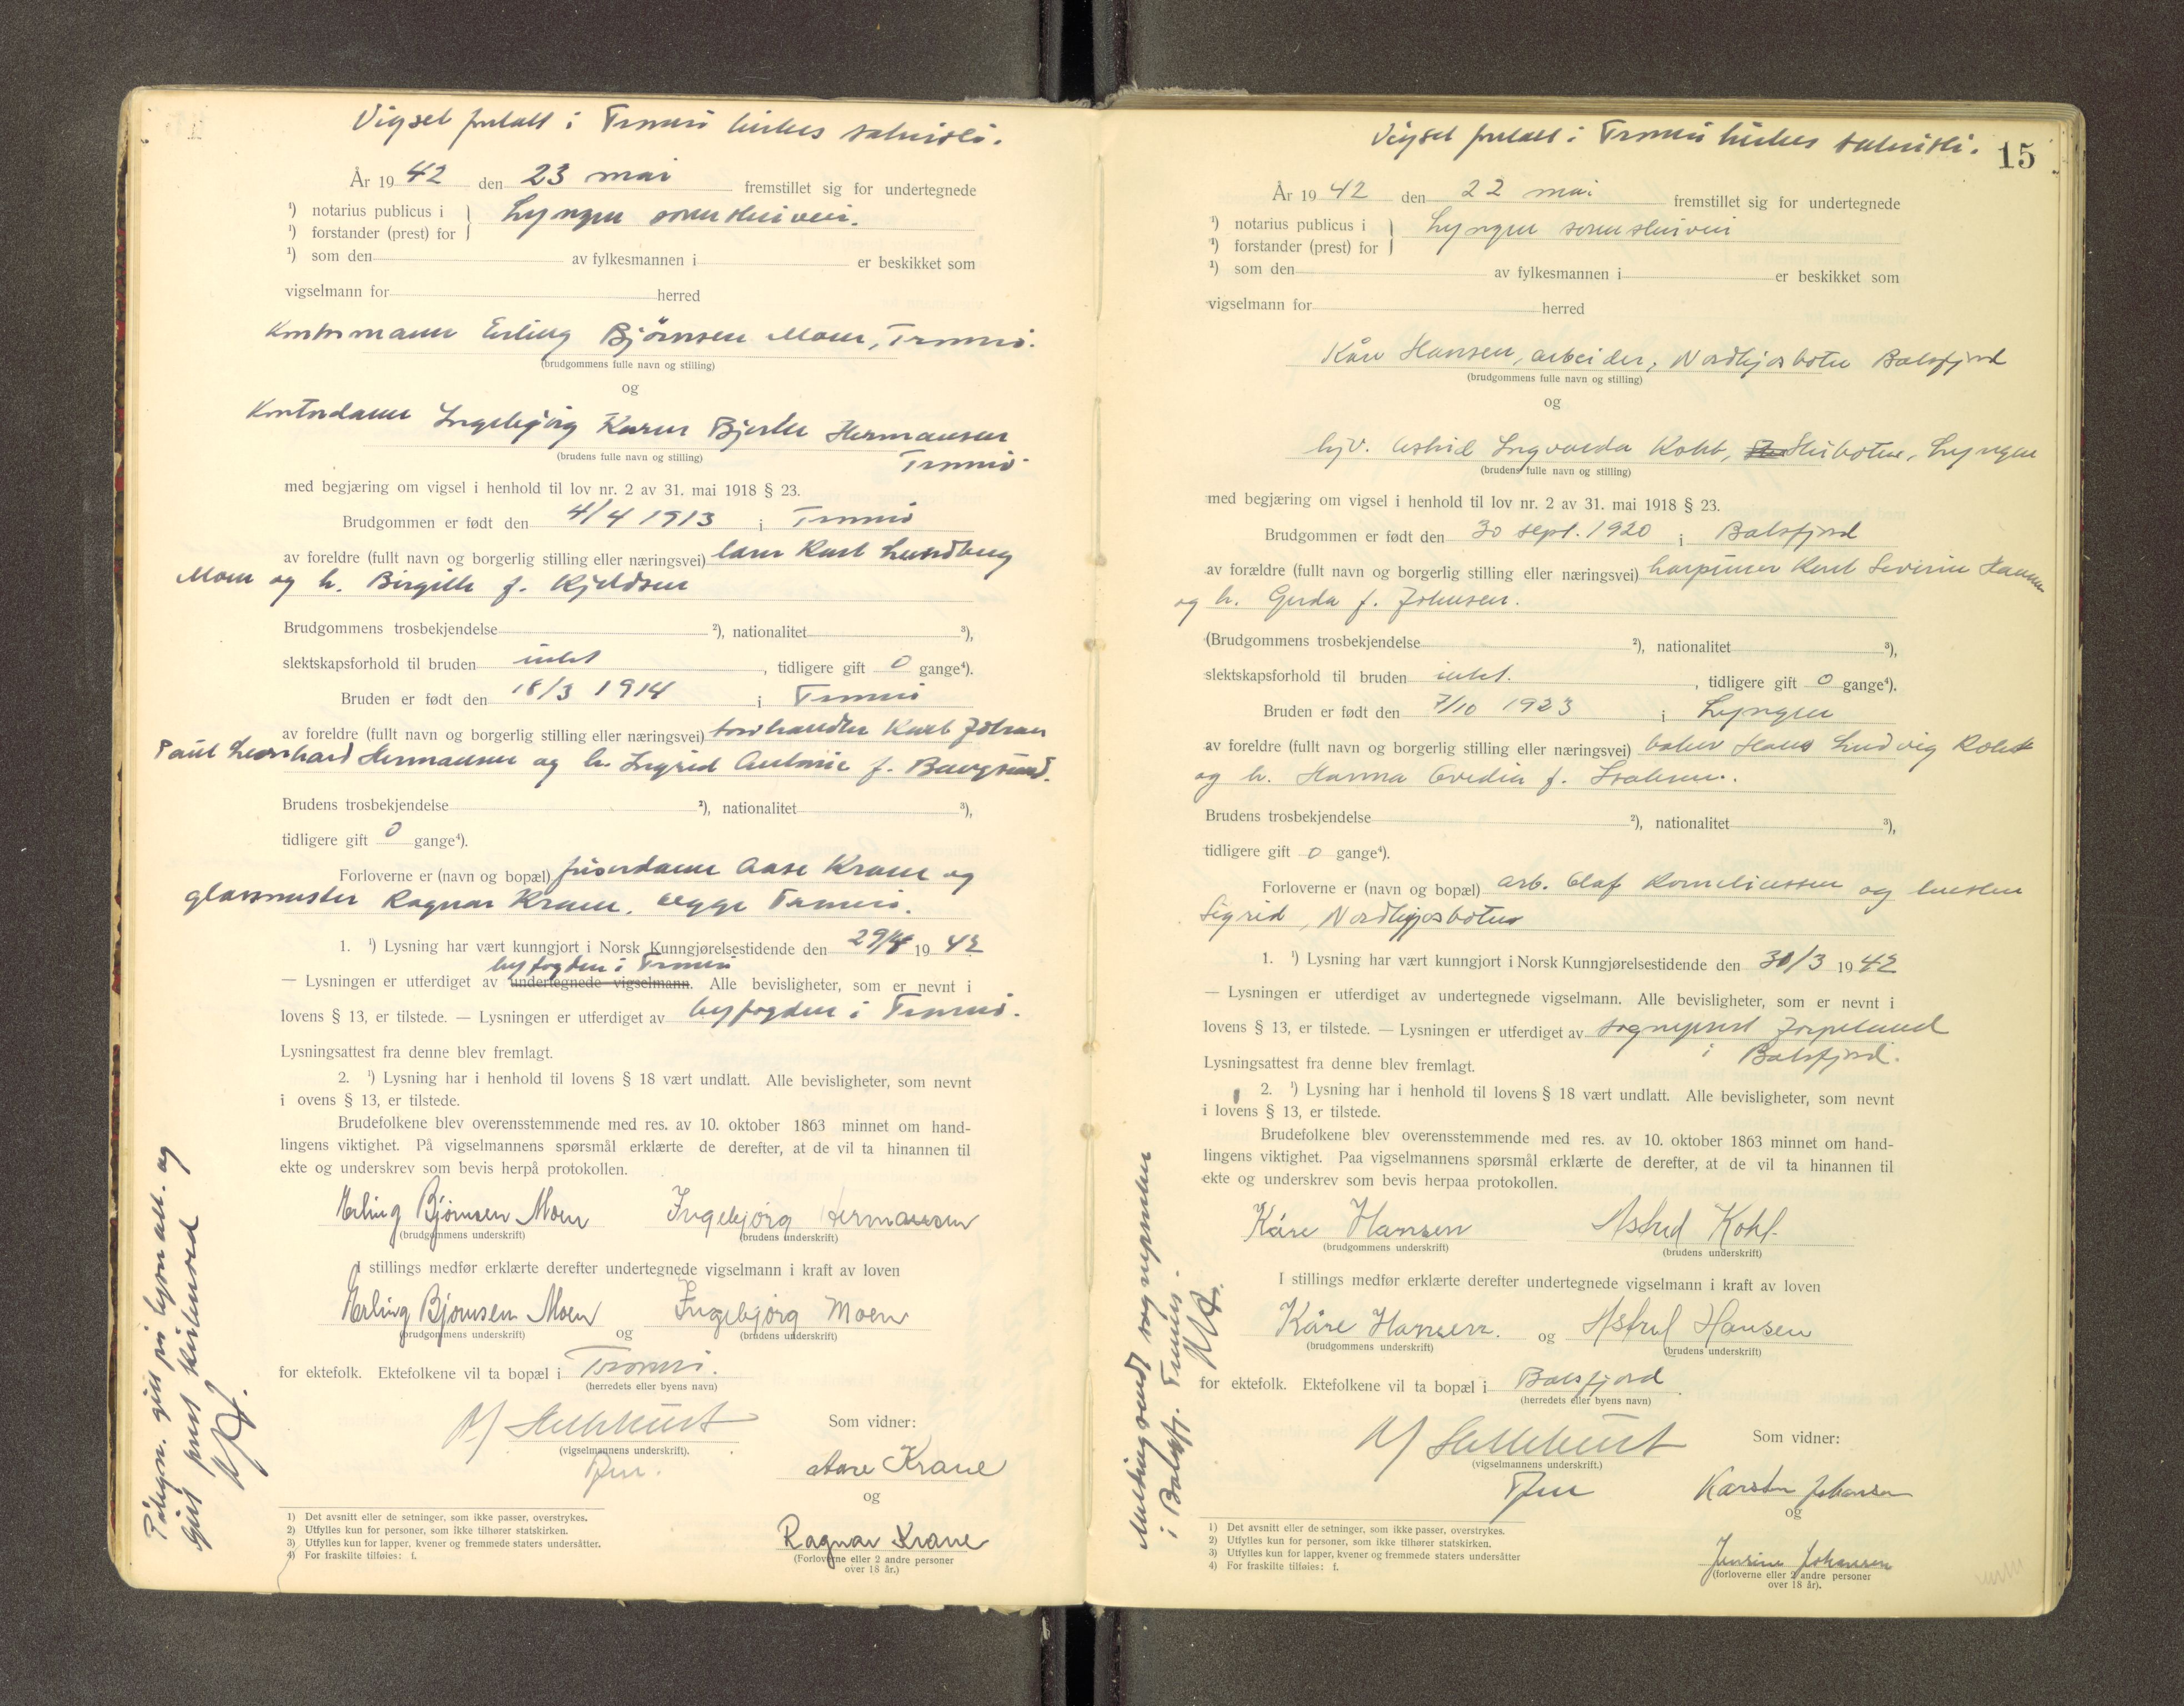 Vigsel foretatt i Tromsø kirkes sakristi.
År 1942 den 23 mai fremstillet sig for undertegnede
¹) notarius publicus i } Lyngen sorenskriveri.
¹) forstander (prest) for
¹) som den av fylkesmannen i er beskikket som
vigselmann for herred
Kontormann Erling Bjørnsen Moen, Tromsø.
(brudgommens fulle navn og stilling)
og
Kontordame Ingebjørg Karen Bjerke Hermansen
(brudens fulle navn og stilling)
Tromsø
med begjæring om vigsel i henhold til lov nr. 2 av 31. mai 1918 § 23.
Brudgommen er født den 4/4 1913 i Tromsø
av foreldre (fullt navn og borgerlig stilling eller næringsvei) Karl Lundberg
Moen og h. Birgitte f. Kjeldsen
Brudgommens trosbekjendelse ²), nationalitet ³),
slektskapsforhold til bruden intet, tidligere gift 0 gange⁴).
Bruden er født den 18/3 1914 i Tromsø
av foreldre (fullt navn og borgerlig stilling eller næringsvei) Karl Johan
Paul Leonhard Hermansen og h. Ingrid Antonie f.
Brudens trosbekjendelse ²), nationalitet ³),
tidligere gift 0 gange⁴).
Forloverne er (navn og bopæl) frisørdame Aase Krane og
glassmester Ragnar Krane, begge Tromsø.
1. ¹) Lysning har vært kunngjort i Norsk Kunngjørelsestidende den 29/4 1942
byfogden i Tromsø
— Lysningen er utferdiget av undertegnede vigselmann. Alle bevisligheter, som er nevnt i
lovens § 13, er tilstede. — Lysningen er utferdiget av byfogden i Tromsø.
Lysningsattest fra denne blev fremlagt.
2. ¹) Lysning har i henhold til lovens § 18 vært undlatt. Alle bevisligheter, som nevnt
i ovens § 13, er tilstede.
Brudefolkene blev overensstemmende med res. av 10. oktober 1863 minnet om hand-
lingens viktighet. På vigselmannens spørsmål erklærte de derefter, at de vil ta hinannen til
ekte og underskrev som bevis herpå protokollen.
Erling Bjørnsen Moen Ingebjørg Hermansen
(brudgommens underskrift) (brudens underskrift)
I stillings medfør erklærte derefter undertegnede vigselmann i kraft av loven
Erling Bjørnsen Moen og Ingebjørg Moen
(brudgommens underskrift) (brudens underskrift)
for ektefolk. Ektefolkene vil ta bopæl i Tromsø.
(herredets eller byens navn)
(vigselmannens underskrift).
Som vidner:
Aase Krane
og
Ragnar Krane
(Forloverne eller 2 andre personer
over 18 år.)
1) Det avsnitt eller de setninger, som ikke passer, overstrykes.
2) Utfylles kun for personer, som ikke tilhører statskirken.
3) Utfylles kun for lapper, kvener og fremmede staters undersåtter.
4) For fraskilte tilføies: f.
Vigsel foretatt i Tromsø kirkes sakristi.
15
År 1942 den 22 mai fremstillet sig for undertegnede
¹) notarius publicus i } Lyngen sorenskriveri
¹) forstander (prest) for
¹) som den av fylkesmannen i er beskikket som
vigselmann for herred
Kåre Hansen, arbeider, Nordkjosbotn Balsfjord
(brudgommens fulle navn og stilling)
og
hjv. Astrid Ingvarda Kohl, Skibotn, Lyngen
(brudens fulle navn og stilling)
med begjæring om vigsel i henhold til lov nr. 2 av 31. mai 1918 § 23.
Brudgommen er født den 30 sept. 1920 i Balsfjord
av forældre (fullt navn og borgerlig stilling eller næringsvei) Severin Hansen
og h. Gerda f. Johnsen.
(Brudgommens trosbekjendelse ²), nationalitet ³),
slektskapsforhold til bruden intet., tidligere gift 0 gange⁴).
Bruden er født den 7/10 1923 i Lyngen
av foreldre (fullt navn og borgerlig stilling eller næringsvei) baker Hans Ludvig Kohl
og h. Hanna Ovedia f. Isaksen.
Brudens trosbekjendelse ²), nationalitet ³),
tidligere gift 0 gange⁴).
Forloverne er (navn og bopæl) arb. Olaf Korneliussen og hustru
Sigrid, Nordkjosbotn
1. ¹) Lysning har vært kunngjort i Norsk Kunngjørelsestidende den 31/3 1942
— Lysningen er utferdiget av undertegnede vigselmann. Alle bevisligheter, som er nevnt i
lovens § 13, er tilstede. — Lysningen er utferdiget av sogneprest Jørpeland
i Balsfjord.
Lysningsattest fra denne blev fremlagt.
2. ¹) Lysning har i henhold til lovens § 18 vært undlatt. Alle bevisligheter, som nevnt
i lovens § 13, er tilstede.
Brudefolkene blev overensstemmende med res. av 10. oktober 1863 minnet om hand-
lingens viktighet. Paa vigselmannens spørsmål erklærte de derefter, at de vil ta hinannen til
ekte og underskrev som bevis herpaa protokollen.
Kåre Hansen Astrid Kohl
(brudgommens underskrift) (brudens underskrift)
I stillings medfør erklærte derefter undertegnede vigselmann i kraft av loven
Kåre Hansen. og Astrid Hansen
(brudgommens underskrift) (brudens underskrift)
for ektefolk. Ektefolkene vil ta bopæl i Balsfjord
(herredets eller byens navn)
(vigselmannens underskrift.)
Som vidner:
Karsten Johansen
og
Jensine Johansen
(forloverne eller 2 andre personer
over 18 år).
1) Det avsnitt eller de setninger, som ikke passer, overstrykes.
2) Utfylles kun for personer, som ikke tilhører statskirken.
3) Utfylles kun for lapper, kvener og fremmede staters undersåtter
4) For fraskilte tilføies: f.
Melding sendt sognepresten
i Balsfj.